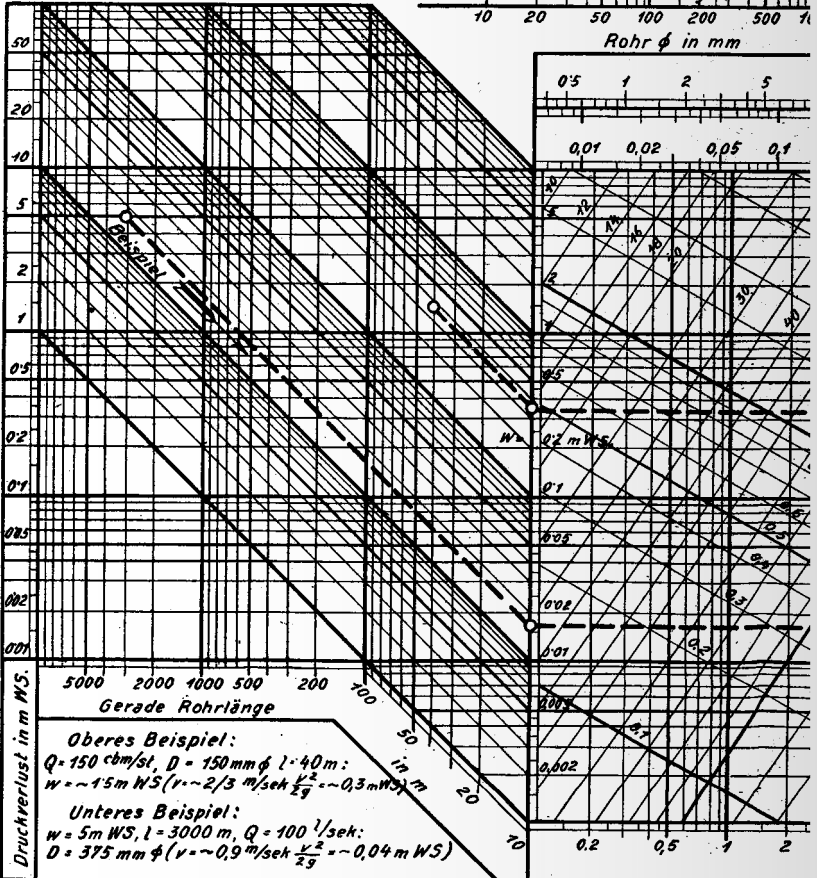 10 20 50 100 200 500
Rohr ϕ in mm
0·5 1 2 5
0,01 0,02 0,05 0,1
50
20
10
5
2
1
0·5
0·2
0·1
0·05
0·02
0·01
Beispiel
10 12 14 16 18 20 30 40
2
1
0·5
w=
0·2 m WS.
0·1
0·05
0·02
0·01
0,005
0,002
0,6
0,5
0,4
0,3
0,2
0,1
5000 2000 1000 500 200 100 50 20 10
in m
0.2 0,5 1 2
Gerade Rohrlänge
Druckverlust in m WS.
Oberes Beispiel:
Q = 150 cbm/st, D = 150 mm ϕ l = 40 m:
w = ~1·5 m WS (v = ~2/3 m/sek v²/2g = ~0,3 m WS)
Unteres Beispiel:
w = 5 m WS, l = 3000 m, Q = 100 l/sek:
D = 375 mm ϕ (v = ~0,9 m/sek v²/2g = ~0,04 m WS)